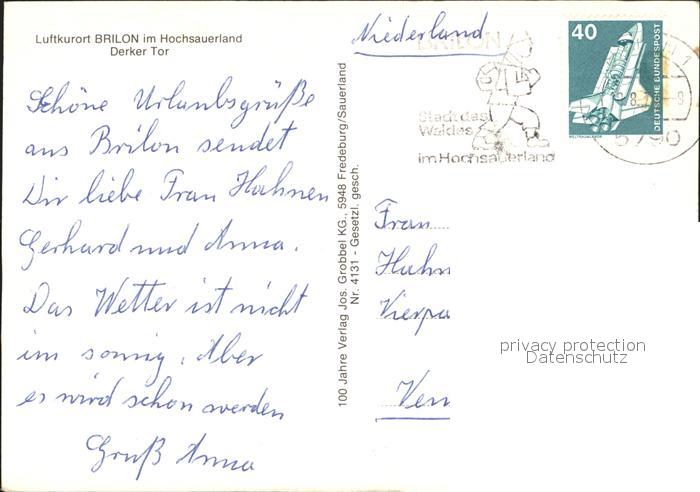 Luftkurort BRILON im Hochsauerland
Derker Tor
Schöne Urlaubsgrüße
aus Brilon sendet
Dir liebe Frau Hahnen
Gerhard und Anna.
Das Wetter ist nicht
im sonnig. Aber
es wird schon werden
Gruß Anna
100 Jahre Verlag Jos. Grobbel KG., 5948 Fredeburg/Sauerland
Nr. 4131 - Gesetzl. gesch.
Niederland
BRILON
Stadt des
Waldes
im Hochsauerland
40
DEUTSCHE BUNDESPOST
WELTRAUMLABOR
5790
Frau
Hahn
Vierpa
Ven
privacy protection
Datenschutz